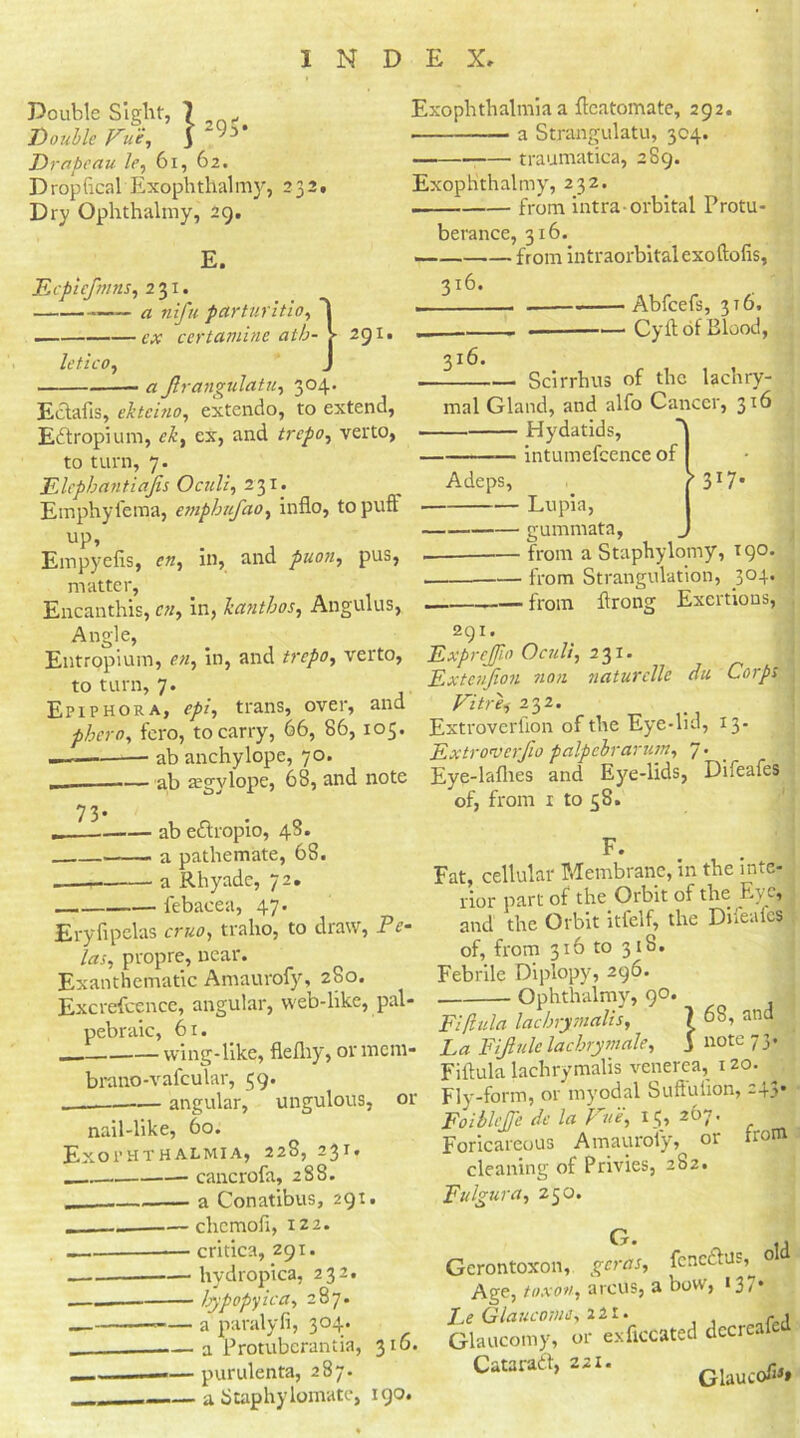 INDEX.
Double Sight, } 295.
Double Vuë, }
Drapeau le, 61, 62.
Dropſical Exophthalmy, 232.
Dry Ophthalmy, 29.
E.
Ecpieſmns, 231.
——— a niſu parturitio, }
——— ex certamine ath- } 291.
letico, }
——— a ſtrangulatu, 304.
Ectaſis, ekteino, extendo, to extend,
Ectropium, ek, ex, and trepo, verto,
to turn, 7.
Elephantiaſis Oculi, 231.
Emphyſema, emphuſao, inflo, to puff
up,
Empyeſis, en, in, and puon, pus,
matter,
Encanthis, en, in, kanthos, Angulus,
Angle,
Entropium, en, in, and trepo, verto,
to turn, 7.
EPIPHORA, epi, trans, over, and
phero, fero, to carry, 66, 86, 105.
——— ab anchylope, 70.
——— ab ægylope, 68, and note
73.
——— ab ectropio, 48.
——— a pathemate, 68.
——— a Rhyade, 72.
——— ſebacea, 47.
Eryſipelas eruo, traho, to draw, Pe-
las, propre, near.
Exanthematic Amauroſy, 280.
Excreſcence, angular, web-like, pal-
pebraic, 61.
——— wing-like, fleſhy, or mem-
brano-vaſcular, 59.
——— angular, ungulous, or
nail-like, 60.
EXOPHTHALMIA, 228, 231.
——— cancroſa, 288.
——— a Conatibus, 291.
——— chemoſi, 122.
——— critica, 291.
——— hydropica, 232.
——— hypopyica, 287.
——— a paralyſi, 304.
——— a Protuberantia, 316.
——— purulenta, 287.
——— a Staphylomate, 190.
Exophthalmia a ſteatomate, 292.
——— a Strangulatu, 304.
——— traumatica, 289.
Exophthalmy, 232.
——— from intra-orbital Protu-
berance, 316.
——— from intraorbital exoſtoſis,
316.
——— ——— Abſceſs, 316.
——— ——— Cyſt of Blood,
316.
——— Scirrhus of the lachry-
mal Gland, and alſo Cancer, 316
——— Hydatids, }
——— intumeſcence of }
Adeps, } 317.
——— Lupia, }
——— gummata, }
——— from a Staphylomy, 190.
——— from Strangulation, 304.
——— from ſtrong Exertions,
291.
Expreſſio Oculi, 231.
Extenſion non naturelle du Corps
Vitrè, 232.
Extroverſion of the Eye-lid, 13.
Extroverſio palpebrarum, 7.
Eye-laſhes and Eye-lids, Diſeaſes
of, from 1 to 58.
F.
Fat, cellular Membrane, in the inte-
rior part of the Orbit of the Eye,
and the Orbit itſelf, the Diſeaſes
of, from 316 to 318.
Febrile Diplopy, 296.
——— Ophthalmy, 90.
Fiſtula lachrymalis, } 68, and
La Fiſtule lachrymale, } note 73.
Fiſtula lachrymalis venerea, 120.
Fly-form, or myodal Suffuſion, 243.
Foibleſſe de la Vuë, 15, 267.
Foricareous Amauroſy, or from
cleaning of Privies, 282.
Fulgura, 250.
G.
Gerontoxon, geras, ſenectus, old
Age, toxon, arcus, a bow, 137.
Le Glaucome, 221.
Glaucomy, or exſiccated decreaſed
Cataract, 221.
Glaucoſis,